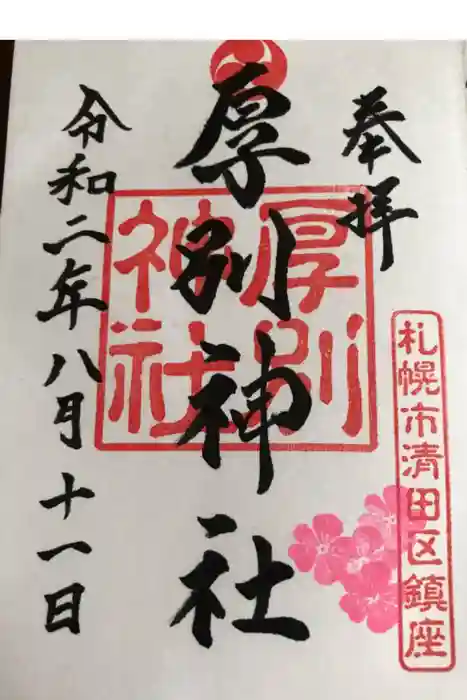 奉拝
札幌市清田区鎮座
厚別神社
厚別
神社
令和二年八月十一日